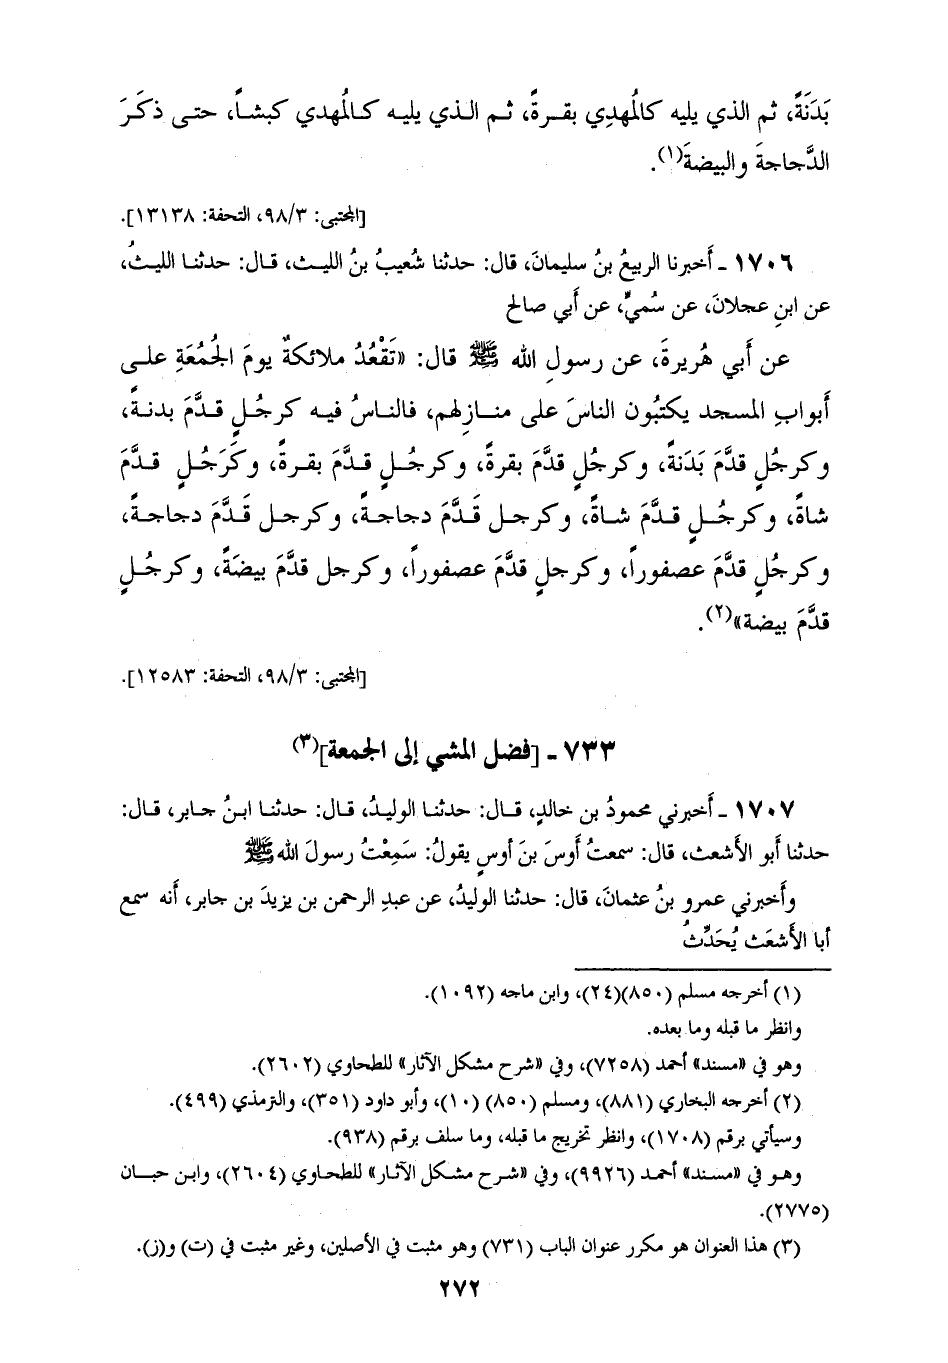 بَدَنَةً، ثم الذي يليه كالمُهدِي بقـرةً، ثـم الـذي يليـه كـالمُهدي كبشـاً، حتـى ذكَـرَ
الدَّجاجةَ والبيضةَ(١).
[المجتبى: ٩٨/٣، التحفة: ١٣١٣٨].
١٧٠٦ ـ أَخبرنا الربيعُ بنُ سليمانَ، قال: حدثنا شُعيبُ بنُ الليـث، قـال: حدثنـا الليـثُ،
عن ابنِ عجلانَ، عن سُميٍّ، عن أَبي صالح
عن أَبي هُريرةَ، عن رسولِ الله ﷺ قال: «تَقْعُدُ ملائكةٌ يومَ الجُمُعَةِ علـى
أَبوابِ المسجد يكتبُون الناسَ على منـازلِهم، فالناسُ فيـه كرجُـلٍ قـدَّمَ بدنـةً،
وكرجُلٍ قدَّمَ بَدَنةً، وكرجُلٍ قدَّمَ بقرةً، وكرجُـلٍ قـدَّمَ بقـرةً، وكَرَجُـلٍ قـدَّمَ
شاةً، وكرجُـلٍ قـدَّمَ شـاةً، وكرجـل قَـدَّمَ دجاجـةً، وكرجـل قَـدَّمَ دجاجـةً،
وكرجُلٍ قدَّمَ عصفوراً، وكرجلٍ قدَّمَ عصفوراً، وكرجل قدَّمَ بيضَةً، وكرجُـلٍ
قدَّمَ بيضة»(٢).
[المجتبى: ٩٨/٣، التحفة: ١٢٥٨٣].
٧٣٣ ـ [فضل المشي إلى الجمعة](٣)
١٧٠٧ ـ أَخبرني محمودُ بن خالدٍ، قـال: حدثنـا الوليـدُ، قال: حدثنـا ابـنُ جـابر، قال:
حدثنا أَبو الأَشعث، قال: سمعتُ أَوسَ بنَ أَوسٍ يقولُ: سَمِعْتُ رسولَ اللهﷺ
وأَخبرني عمرو بنُ عثمانَ، قال: حدثنا الوليدُ، عن عبدِ الرحمن بن يزيدَ بن جابر، أَنه سمع
أبا الأَشعَث يُحَدِّثُ
(١) أخرجه مسلم (٨٥٠)(٢٤)، وابن ماجه (١٠٩٢).
وانظر ما قبله وما بعده.
وهو في «مسند» أحمد (٧٢٥٨)، وفي «شرح مشكل الآثار» للطحاوي (٢٦٠٢).
(٢) أخرجه البخاري (٨٨١)، ومسلم (٨٥٠) (١٠)، وأبو داود (٣٥١)، والترمذي (٤٩٩).
وسيأتي برقم (١٧٠٨)، وانظر تخريج ما قبله، وما سلف برقم (٩٣٨).
وهـو في «مسـند» أحمـد (٩٩٢٦)، وفي «شـرح مشـكل الآثـار» للطحـاوي (٢٦٠٤)، وابـن حبـان
(٢٧٧٥).
(٣) هذا العنوان هو مكرر عنوان الباب (٧٣١) وهو مثبت في الأصلين، وغير مثبت في (ت) و(ز).
٢٧٢